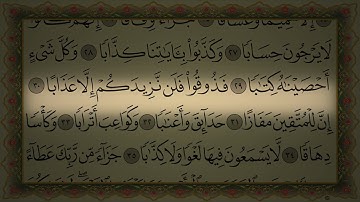 إِلَّا حَمِيمًا وَغَسَّاقًا ٢٥ جَزَآءً وِفَاقًا ٢٦ إِنَّهُمْ كَانُوا۟
لَا يَرْجُونَ حِسَابًا ٢٧ وَكَذَّبُوا۟ بِـَٔايَـٰتِنَا كِذَّابًا ٢٨ وَكُلَّ شَىْءٍ
أَحْصَيْنَـٰهُ كِتَـٰبًا ٢٩ فَذُوقُوا۟ فَلَن نَّزِيدَكُمْ إِلَّا عَذَابًا ٣٠
إِنَّ لِلْمُتَّقِينَ مَفَازًا ٣١ حَدَآئِقَ وَأَعْنَـٰبًا ٣٢ وَكَوَاعِبَ أَتْرَابًا ٣٣ وَكَأْسًا
دِهَاقًا ٣٤ لَّا يَسْمَعُونَ فِيهَا لَغْوًا وَلَا كِذَّٰبًا ٣٥ جَزَآءً مِّن رَّبِّكَ عَطَآءً